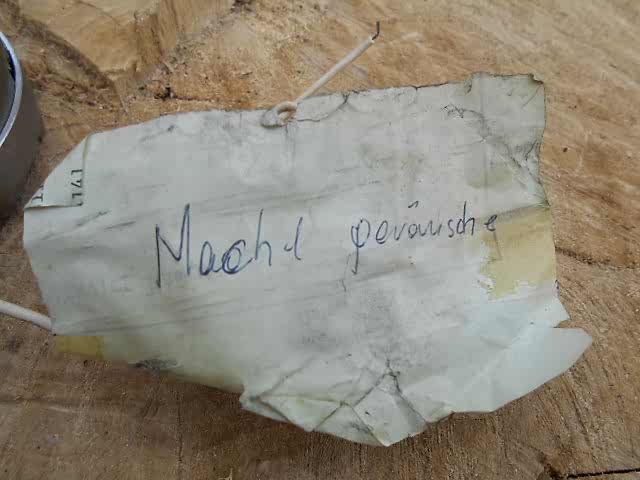 Macht geräusche
141